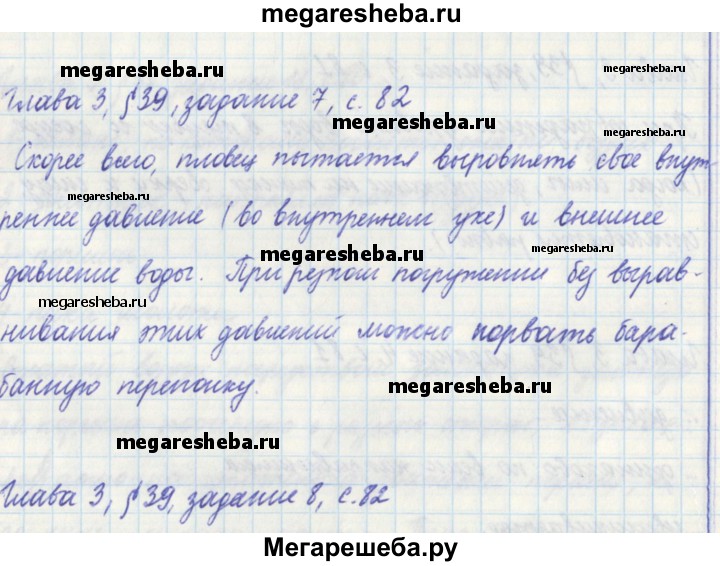 megaresheba.ru
megaresheba.ru
megaresheba.ru
Глава 3, §39, задание 7, с. 82
megaresheba.ru
megaresheba.ru
Скорее всего, пловец пытается выровнять свое внут-
megaresheba.ru
реннее давление (во внутреннем ухе) и внешнее
megaresheba.ru
megaresheba.ru
давление воды. При резком погружении без вырав-
megaresheba.ru
нивания этих давлений можно порвать бара-
банную перепонку.
megaresheba.ru
megaresheba.ru
Глава 3, §39, задание 8, с. 82
Мегарешеба.ру